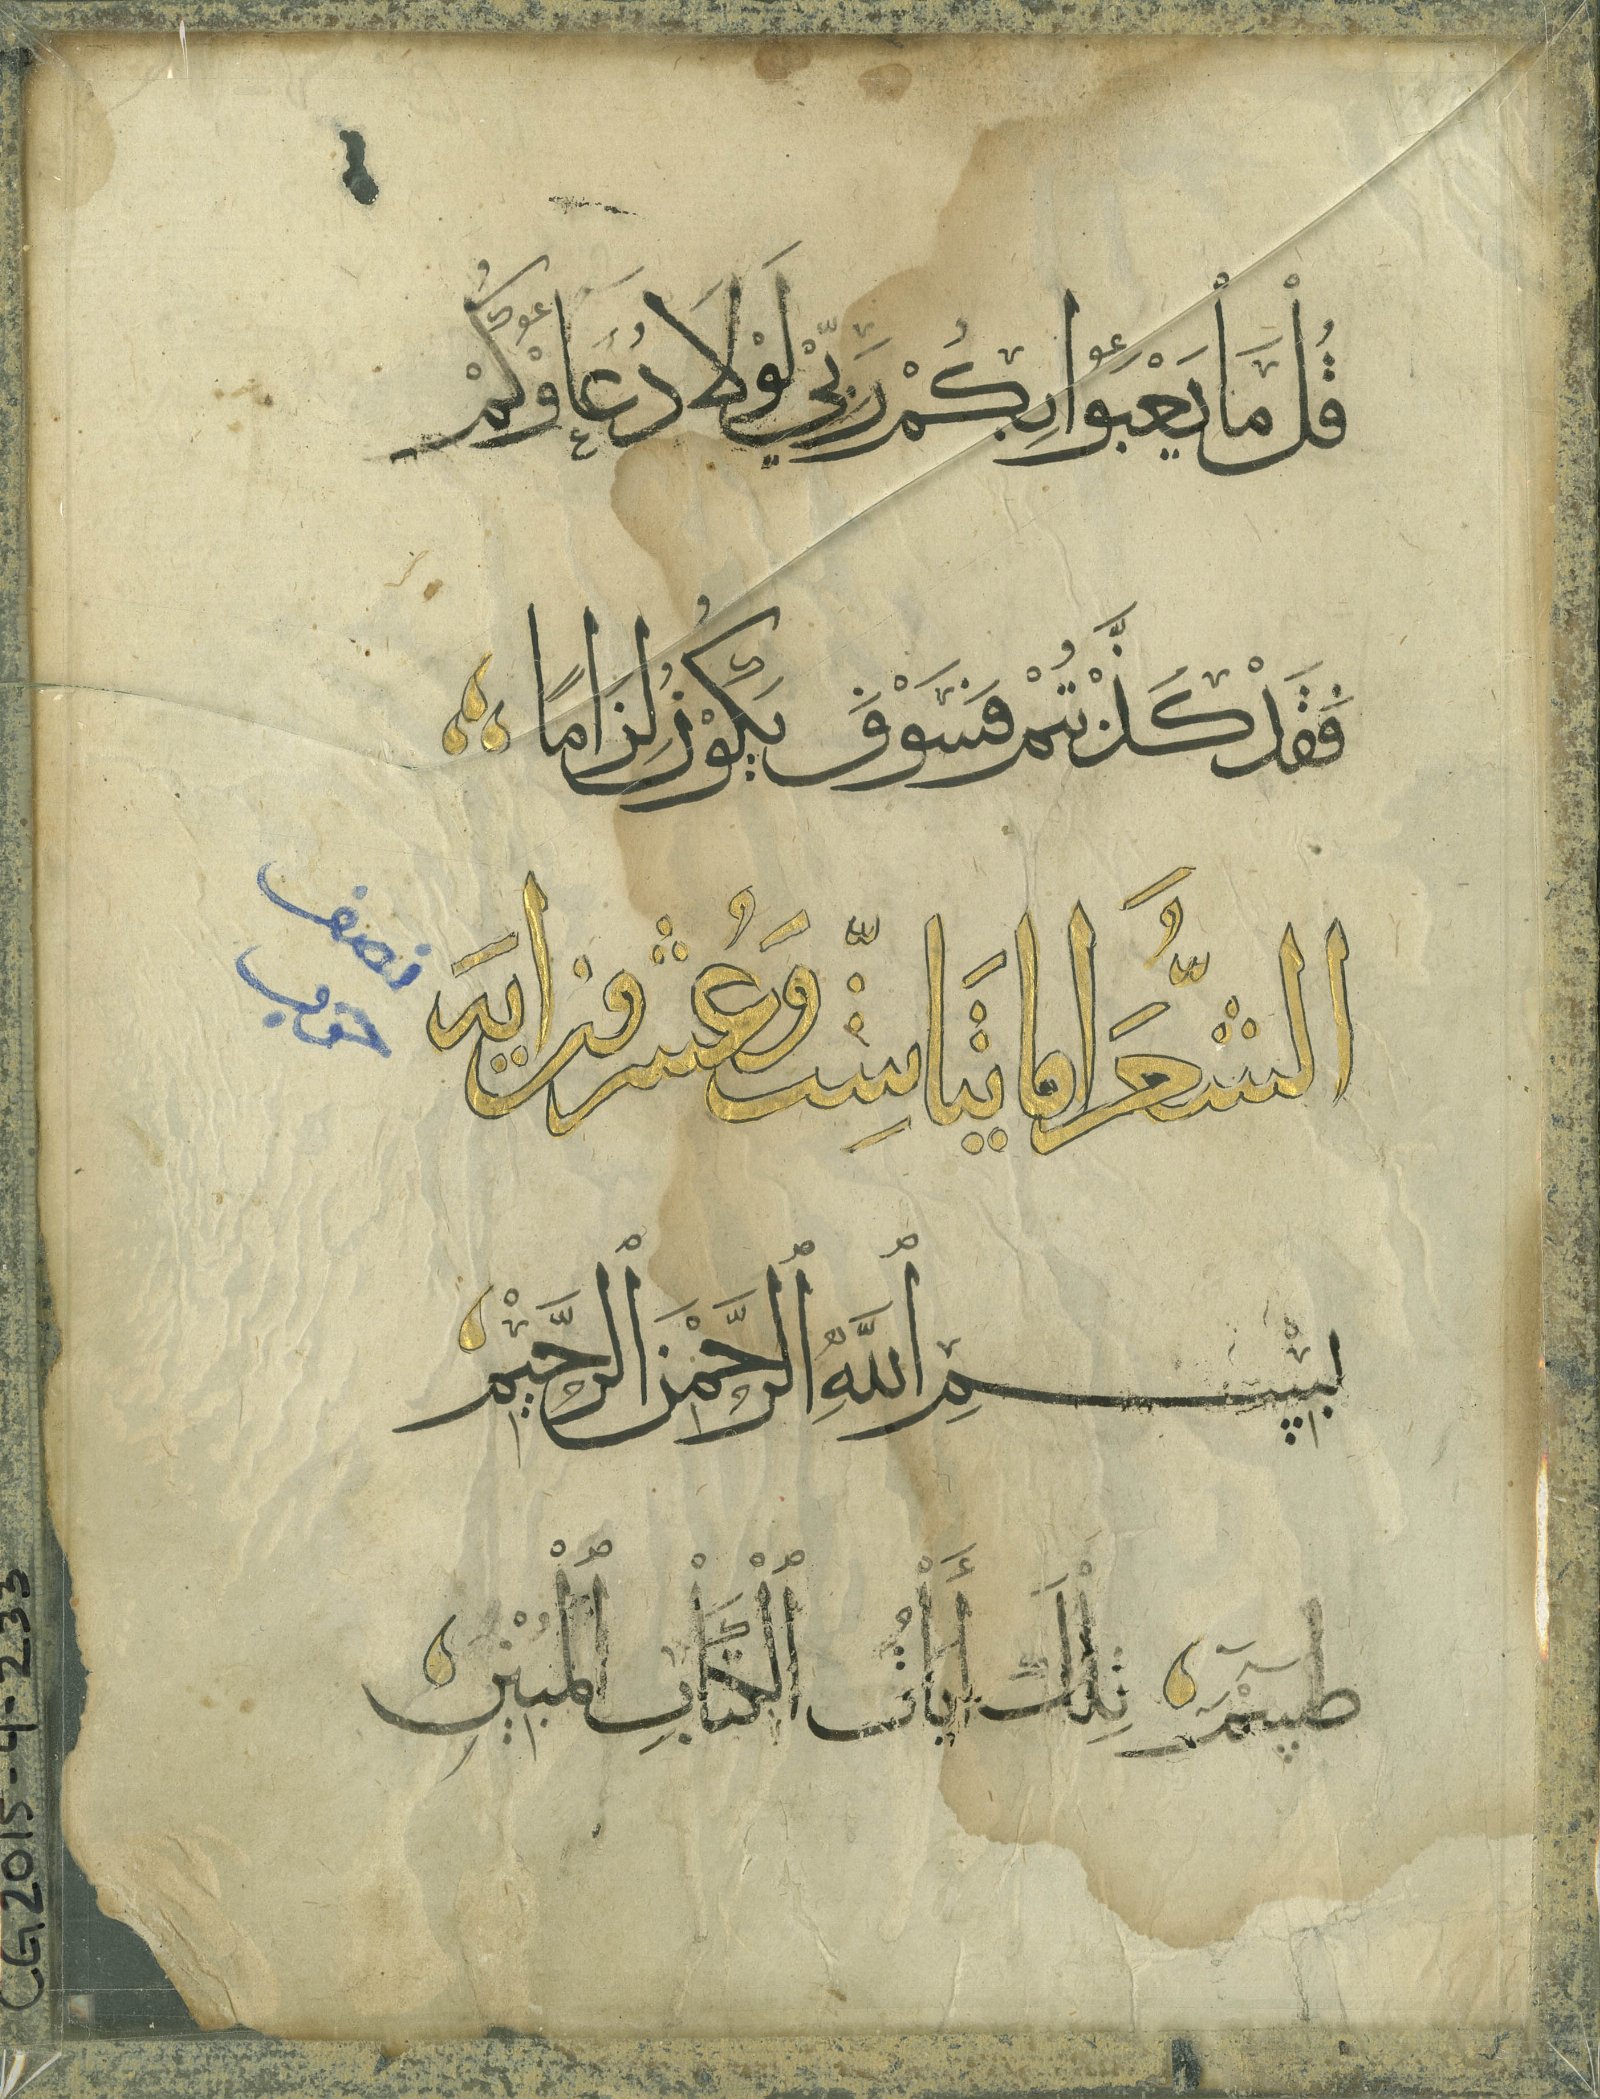 قُلْ مَا يَعْبَؤُا بِكُمْ رَبِّيْ لَوْلَا دُعَاؤُكُمْ
فَقَدْ كَذَّبْتُمْ فَسَوْفَ يَكُوْنُ لِزَامًا
الشُّعَرَا مائتا سِتّ وَعُشرون اية
نصف
حزب
بِسْمِ ٱللَّهِ ٱلرَّحْمٰنِ ٱلرَّحِيْمِ
طسٓمٓ تِلْكَ أٰيَاتُ ٱلْكِتَابِ ٱلْمُبِيْنِ
CG2015-4-233